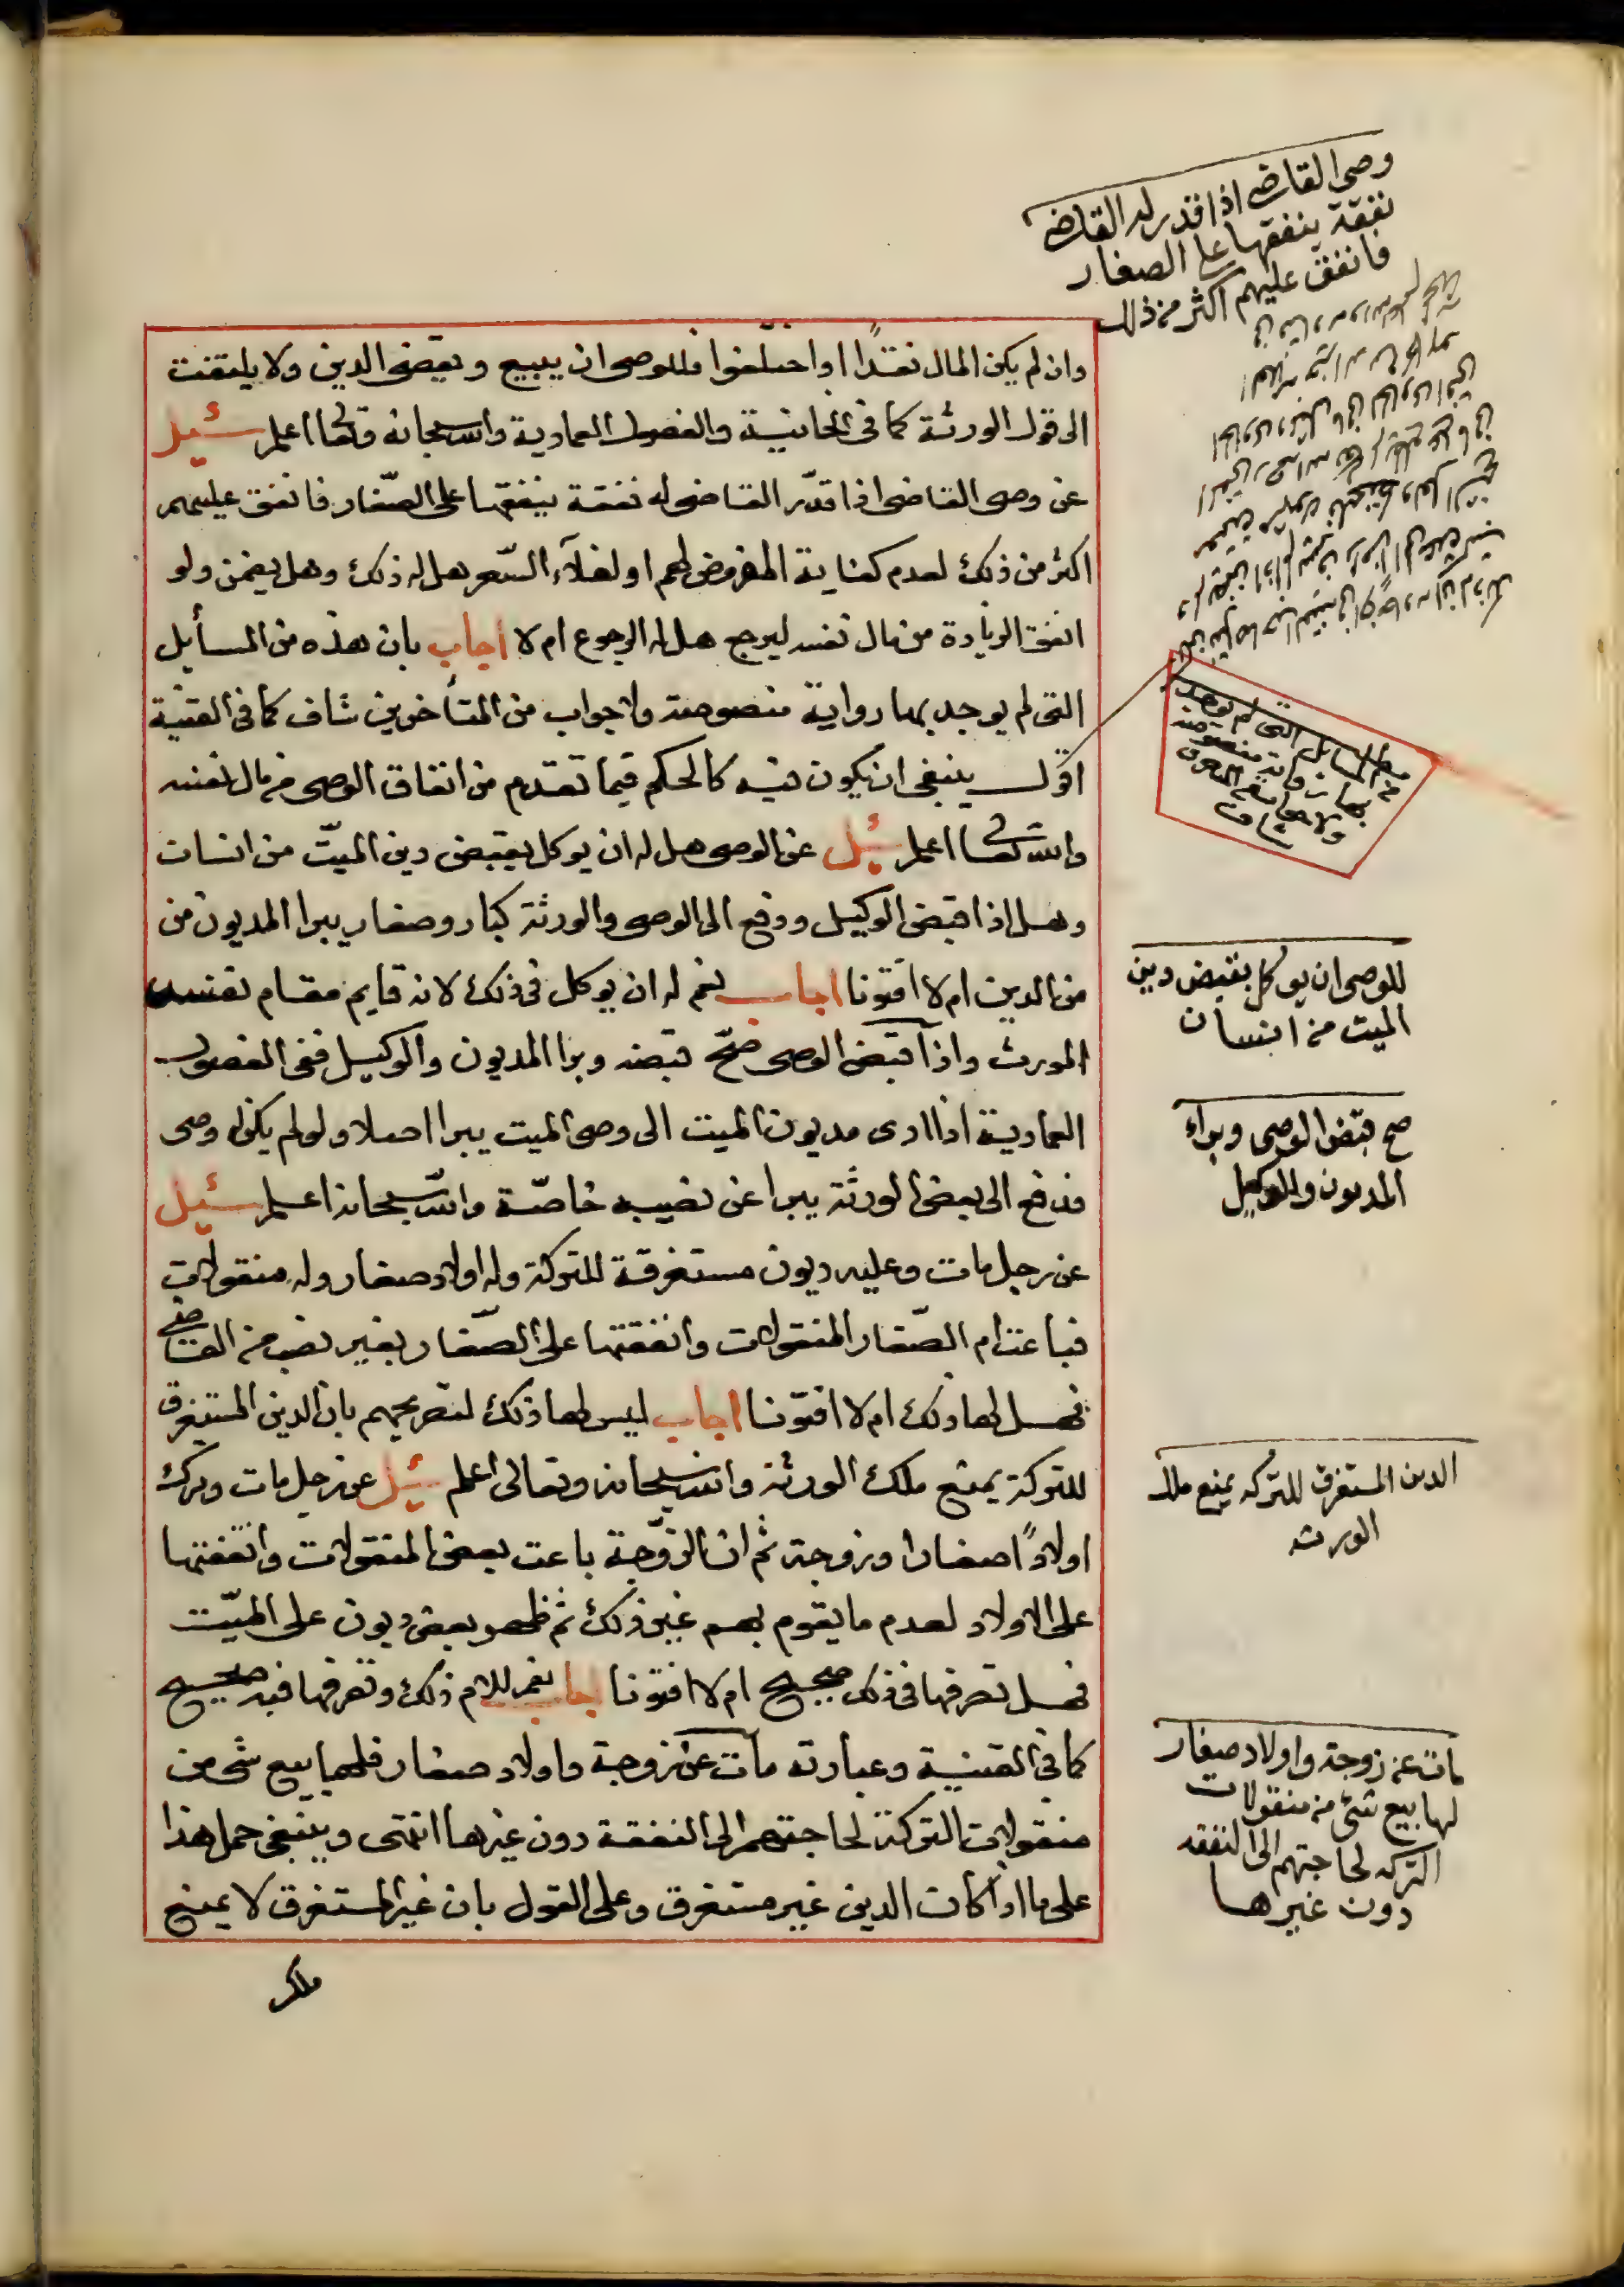 وصى القاضى اذا قدر له القاضى
نفقة ينفقها على الصغار
فانفق عليهم اكثر من ذلك
وان لم يكن المال نقدًا او اختلفوا فللوصى ان يبيع ويقضى الدين ولا يلتفت
الى قول الورثة كما فى الخانية والفصول العمادية والله سبحانه وتعالى اعلم سئيل
عن وصى القاضى اذا قدّر القاضى له نفقة ينفقها على الصّغار فانفق عليهم
اكثر من ذلك لعدم كفاية المفروض لهم او لغلآء السّعر هل له ذلك وهل يضمن ولو
انفق الزيادة من مال نفسه ليرجع هل له الرجوع ام لا اجاب بان هذه من المسأيل
التى لم يوجد بها رواية منصوصة ولا جواب من المتأخرين شاف كما فى القنية
اقول ينبغى ان يكون فيه كالحكم فيما تقدم من انفاق الوصى من مال نفسه
والله تعالى اعلم سئيل عن الوصى هل له ان يوكل بقبض دين الميّت من انسان
وهل اذا قبض الوكيل ودفع الى الوصى والورثة كبار وصغار يبرا المديون من
من الدين ام لا افتونا اجاب نعم له ان يوكل فى ذلك لانه قايم مقام نفسه
المورث واذا قبض الوصى صحّ قبضه وبرا المديون والوكيل ففى الفصول
العمادية اذا ادى مديون الميت الى وصى الميت يبرا اصلا ولو لم يكن له وصى
فدفع الى بعض الورثة يبرا عن نصيبه خاصّة والله سبحانه اعلم سئيل
عن رجل مات وعليه ديون مستغرقة للتركة وله اولاد صغار وله منقولات
فباعت ام الصّغار المنقولات وانفقتها على الصّغار بغير نصب من القاضى
فهل لها ذلك ام لا افتونا اجاب ليس لها ذلك لتصريحهم بان الدين المستغرق
للتركة يمنع ملك الورثة والله سبحانه وتعالى اعلم سئيل عن رجل مات وترك
اولادًا صغارا وزوجة ثم ان الزّوجة باعت بعض المنقولات وانفقتها
على الاولاد لعدم ما يقوم بهم غير ذلك ثم ظهر بعض ديون على الميّت
فهل تصرفها فى ذلك صحيح ام لا افتونا اجاب نعم للام ذلك وتصرفها فيه صحيح
كما فى القنية وعبارته مات عن زوجة واولاد صغار فلها بيع شى من
منقولات التركة لحاجتهم الى النفقة دون غيرها انتهى وينبغى حمل هذا
على ما اذا كان الدين غير مستغرق وعلى القول بان غير المستغرق لا يمنع
ملك
من المسايل التى لم يوجد
بها رواية منصوصة
شاف
للوصى ان يوكل بقبض دين
الميت من انسان
صح قبض الوصى وبراء
المديون والوكيل
الدين المستغرق للتركه يمنع ملك
الورثه
مات عن زوجة واولاد صغار
لها بيع شى من منقولات
التركه لحاجتهم الى النفقه
دون غيرها